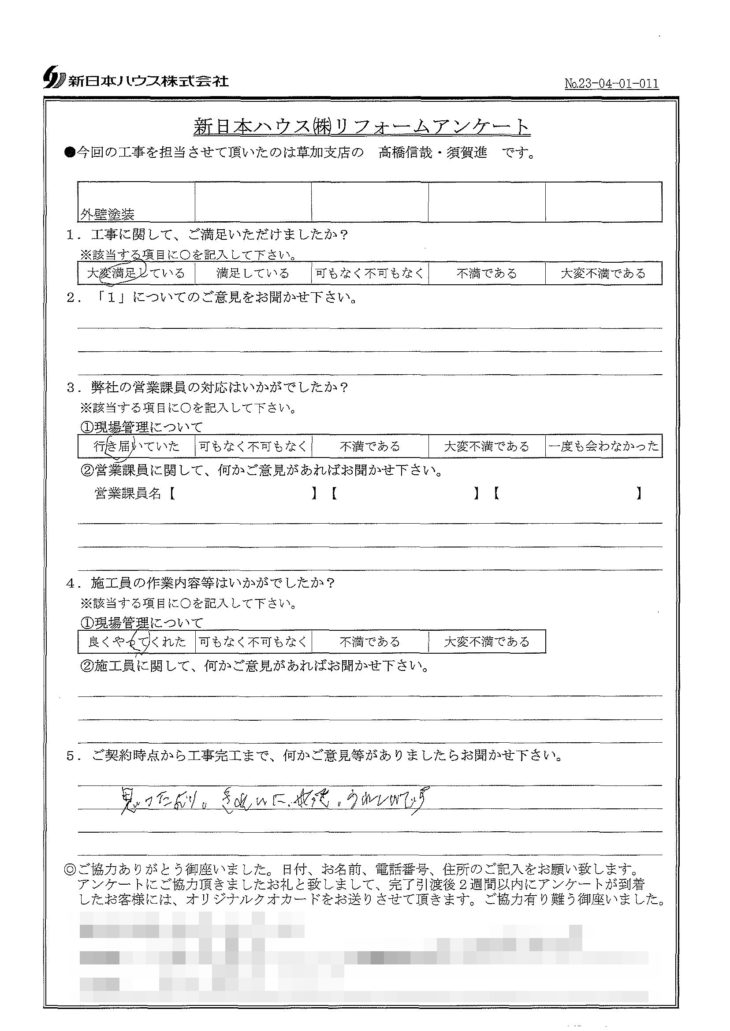 新日本ハウス株式会社
№23-04-01-011
新日本ハウス㈱リフォームアンケート
●今回の工事を担当させて頂いたのは草加支店の 高橋信哉・須賀進 です。
外壁塗装
１．工事に関して、ご満足いただけましたか？
※該当する項目に○を記入して下さい。
大変満足している 満足している 可もなく不可もなく 不満である 大変不満である
２．「１」についてのご意見をお聞かせ下さい。
３．弊社の営業課員の対応はいかがでしたか？
※該当する項目に○を記入して下さい。
①現場管理について
行き届いていた 可もなく不可もなく 不満である 大変不満である 一度も会わなかった
②営業課員に関して、何かご意見があればお聞かせ下さい。
営業課員名【 】【 】【 】
４．施工員の作業内容等はいかがでしたか？
※該当する項目に○を記入して下さい。
①現場管理について
良くやってくれた 可もなく不可もなく 不満である 大変不満である
②施工員に関して、何かご意見があればお聞かせ下さい。
５．ご契約時点から工事完工まで、何かご意見等がありましたらお聞かせ下さい。
思ったより。きれいに、うれしいです
◎ご協力ありがとう御座いました。日付、お名前、電話番号、住所のご記入をお願い致します。
アンケートにご協力頂きましたお礼と致しまして、完了引渡後２週間以内にアンケートが到着
したお客様には、オリジナルクオカードをお送りさせて頂きます。ご協力有り難う御座いました。